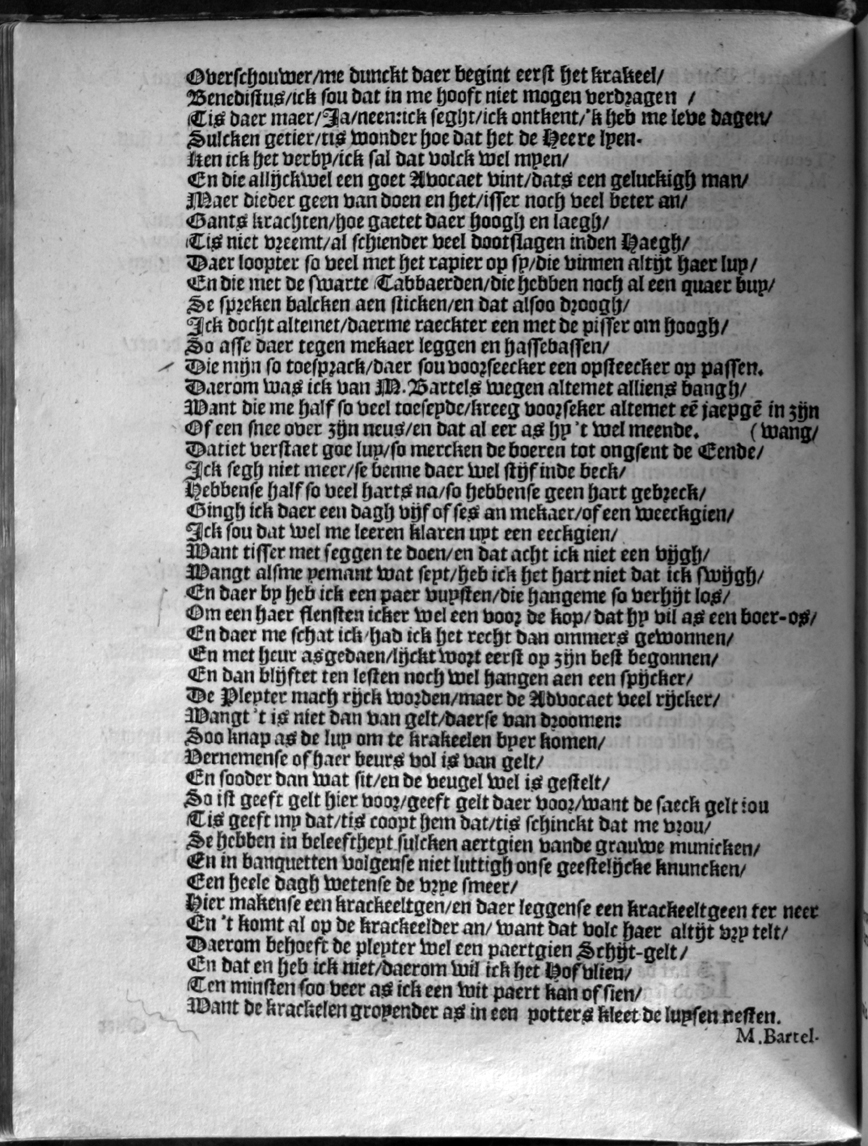 Overschouwer/me dunckt daer begint eerst het krakeel/
Benedistus/ick sou dat in me hooft niet mogen verdragen /
Tis daer maer/Ja/neen:ick seght/ick ontkent/'k heb me leve dagen/
Sulcken getier/tis wonder hoe dat het de Heere lyen.
Ken ick het verby/ick sal dat volck wel myen/
En die allijckwel een goet Advocaet vint/dats een geluckigh man/
Maer dieder geen van doen en het/isser noch veel beter an/
Gants krachten/hoe gaetet daer hoogh en laegh/
Tis niet vreemt/al schiender veel dootslagen inden Haegh/
Daer loopter so veel met het rapier op sy/die vinnen altijt haer luy/
En die met de swarte Tabbaerden/die hebben noch al een quaer buy/
Se spreken balcken aen sticken/en dat alsoo droogh/
Ick docht altemet/daerme raeckter een met de pisser om hoogh/
So asse daer tegen mekaer leggen en hassebassen/
Die mijn so toesprack/daer sou voorseecker een opsteecker op passen.
Daerom was ick van M. Bartels wegen altemet alliens bangh/
Want die me half so veel toeseyde/kreeg voorseker altemet eē jaepgē in zijn
Of een snee over zijn neus/en dat al eer as hy 't wel meende. (wang/
Datiet verstaet goe luy/so mercken de boeren tot ongsent de Eende/
Ick segh niet meer/se benne daer wel stijf inde beck/
Hebbense half so veel harts na/so hebbense geen hart gebreck/
Gingh ick daer een dagh vijf of ses an mekaer/of een weeckgien/
Ick sou dat wel me leeren klaren uyt een eeckgien/
Want tisser met seggen te doen/en dat acht ick niet een vijgh/
Wangt alsme yemant wat seyt/heb ick het hart niet dat ick swijgh/
En daer by heb ick een paer vuysten/die hangeme so verhijt los/
Om een haer flensten icker wel een voor de kop/ dat hy vil as een boer-os/
En daer me schat ick/had ick het recht dan ommers gewonnen/
En met heur asgedaen/lijckt wort eerst op zijn best begonnen/
En dan blijftet ten lesten noch wel hangen aen een spijcker/
De Pleyter mach rijck worden/maer de Advocaet veel rijcker/
Wangt 't is niet dan van gelt/daerse van droomen:
Soo knap as de luy om te krakeelen byer komen/
Vernemense of haer beurs vol is van gelt/
En sooder dan wat sit/en de veugel wel is gestelt/
So ist geeft gelt hier voor/geeft gelt daer voor/want de saeck gelt jou
Tis geeft my dat/tis coopt hem dat/tis schinckt dat me vrou/
Se hebben in beleeftheyt sulcken aertgien vande grauwe municken/
En in banquetten volgense niet luttigh onse geestelijcke knuncken/
Een heele dagh wetense de vrye smeer/
Hier makense een krackeeltgen/en daer leggense een krackeeltgeen ter neer
En 't komt al op de krackeelder an/ want dat volc haer altijt vry telt/
Daerom behoeft de pleyter wel een paertgien Schijt-gelt/
En dat en heb ick niet/daerom wil ick het Hof vlien/
Ten minsten soo veer as ick een wit paert kan of sien/
Want de krackelen groyender as in een potters kleet de luysen nesten.
M.Bartel-